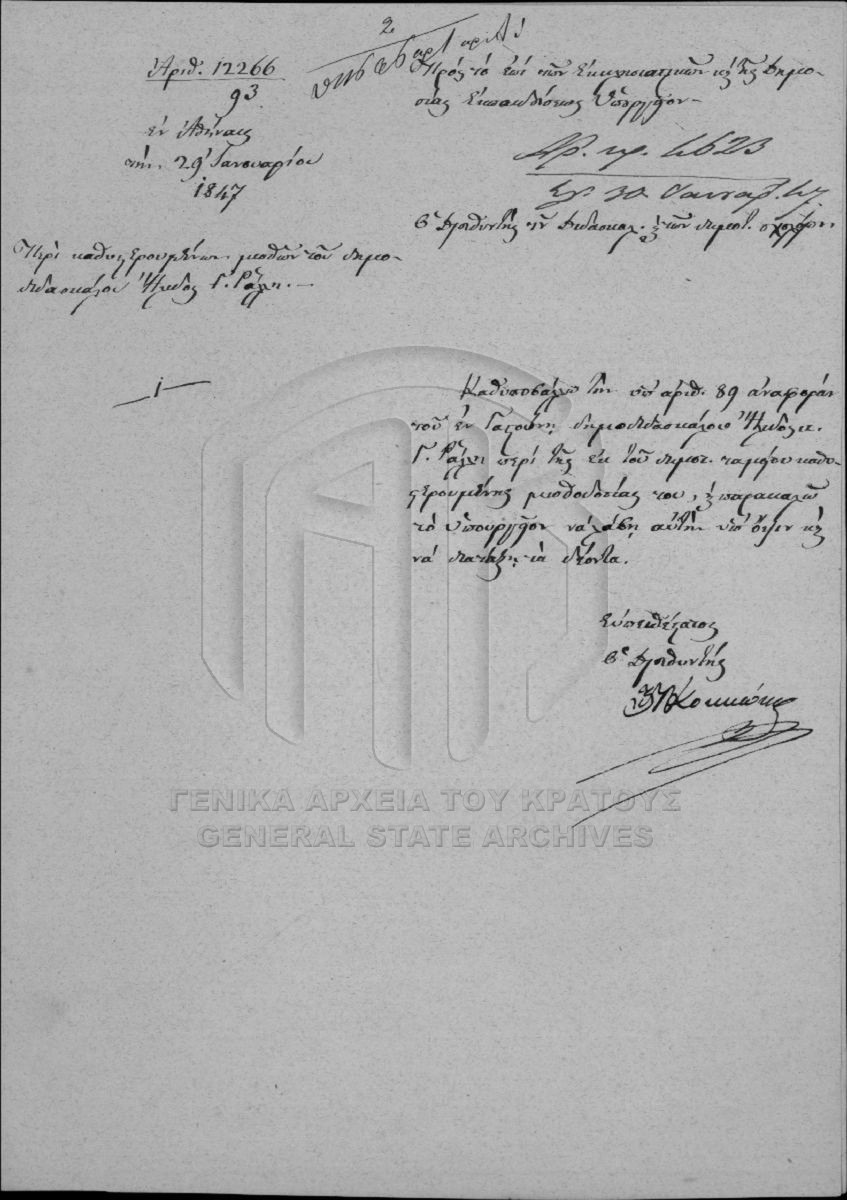 2
Ἀριθ. 12266
93
ἐν Ἀθήναις
τὴν 29 Ἰανουαρίου
1847
Πρὸς τὸ ἐπὶ τῶν Ἐκκλησιαστικῶν κ τῆς Δημο-
σίας Ἐκπαιδεύσεως Ὑπουργεῖον
Ἀρ. πρ. 4623
30 Ἰανουαρ. 47
Ὁ Διευθυντὴς τῶν Διδασκαλ. κ τῶν δημοτ. σχολείων.
Περὶ καθυστερουμένων μισθῶν τοῦ δημο-
διδασκάλου Ἤλιδος Γ. Ράλλη.
1
Καθυποβάλλω τὴν ὑπ' ἀριθ. 89 ἀναφορὰν
τοῦ ἐν Γαστούνῃ δημοδιδασκάλου Ἤλιδος
Γ. Ράλλη περὶ τῆς ἐκ τοῦ δημοτ. ταμείου καθυ-
στερουμένης μισθοδοσίας του, κ παρακαλῶ
τὸ Ὑπουργεῖον νὰ λάβῃ αὐτὴν ὑπ' ὄψιν κ
νὰ διατάξῃ τὰ δέοντα.
Εὐπειθέστατος
Ὁ Διευθυντὴς
Κοκκώνης
ΓΕΝΙΚΑ ΑΡΧΕΙΑ ΤΟΥ ΚΡΑΤΟΥΣ
GENERAL STATE ARCHIVES